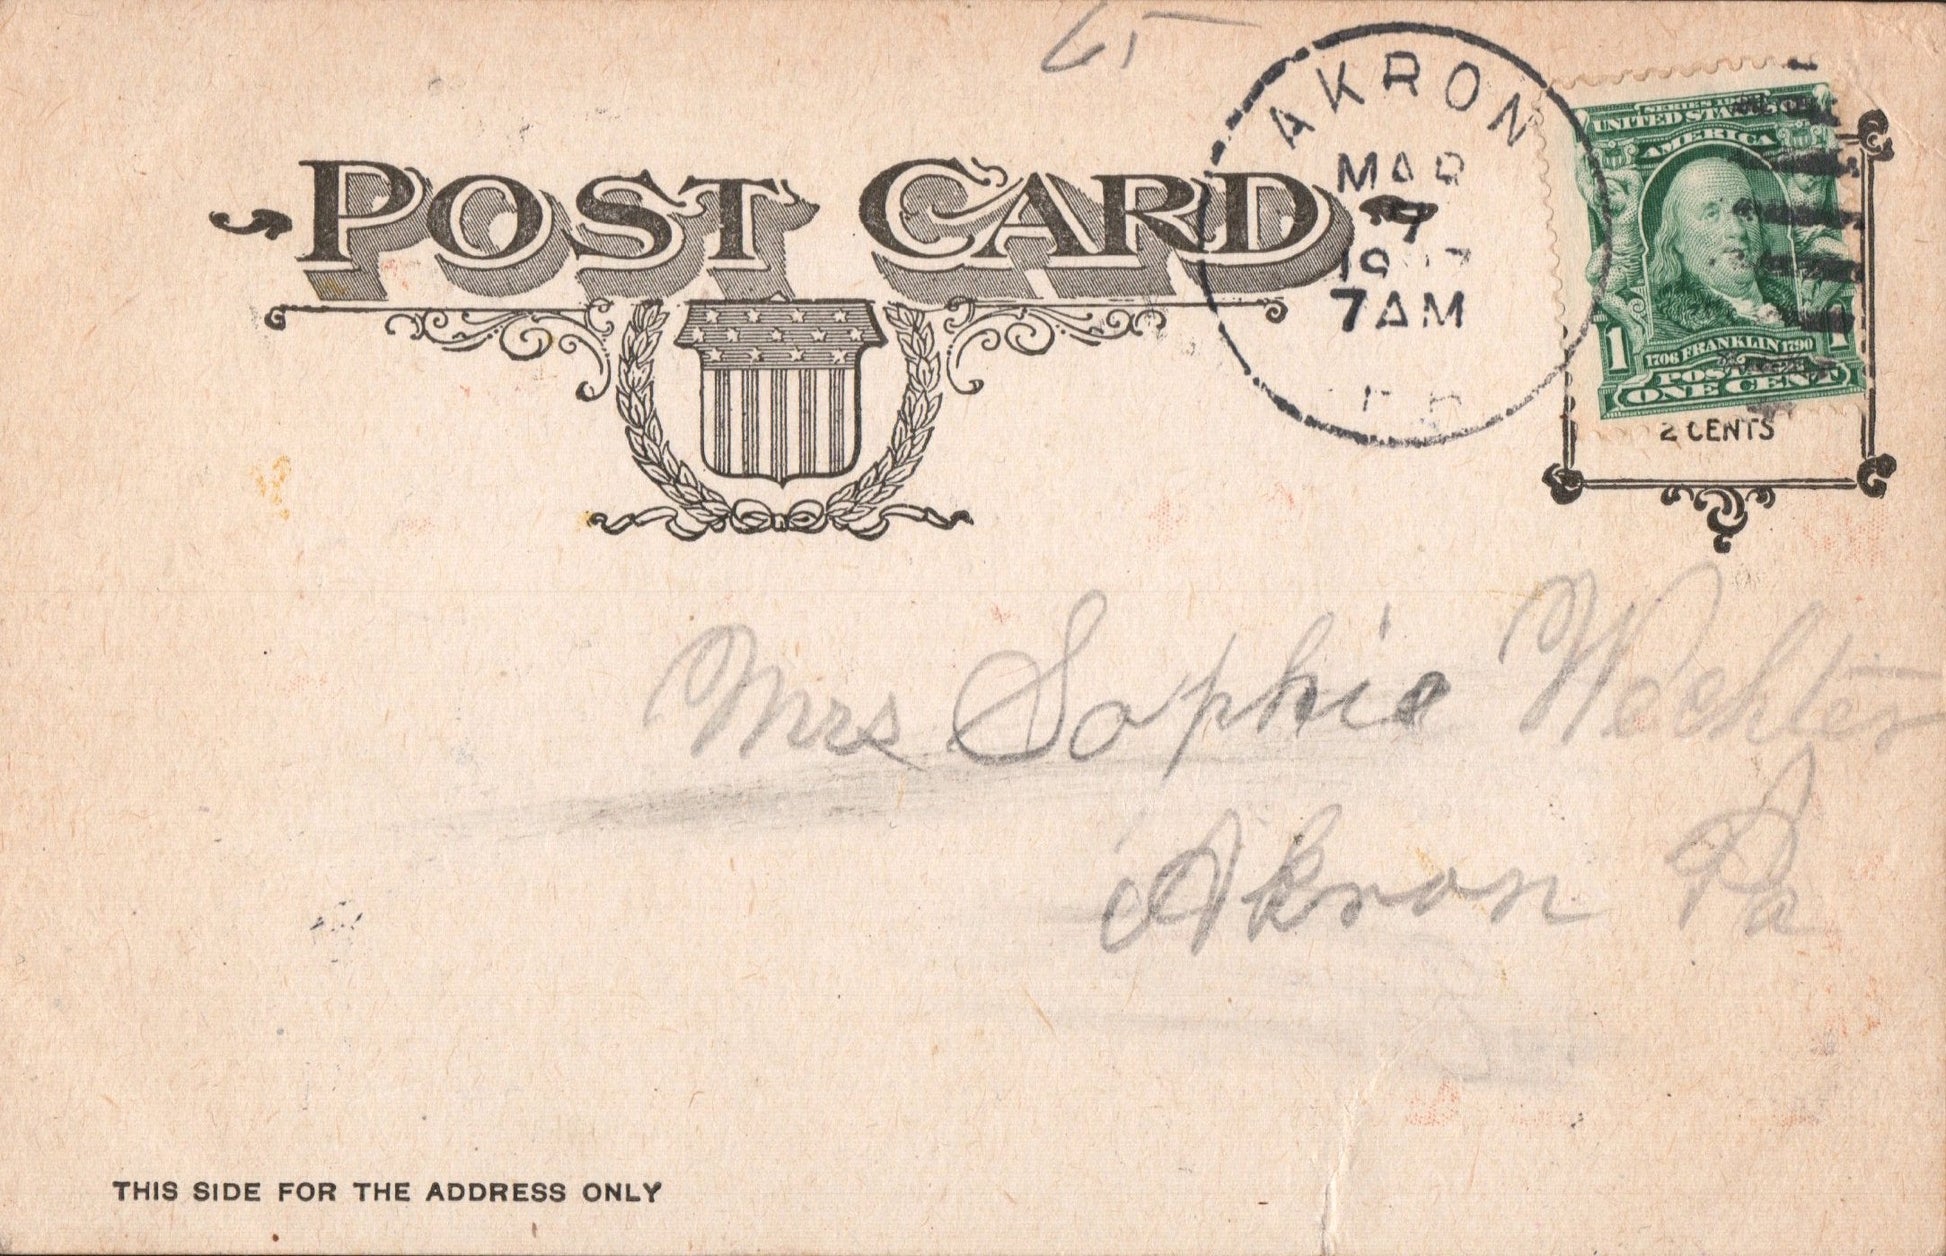 65
POST CARD
AKRON
MAR
7
7 AM
SERIES
UNITED STATES OF
AMERICA
1706 FRANKLIN 1790
1 1
POSTAGE
ONE CENT
2 CENTS
Mrs Sophie Wechter
Akron Pa
THIS SIDE FOR THE ADDRESS ONLY